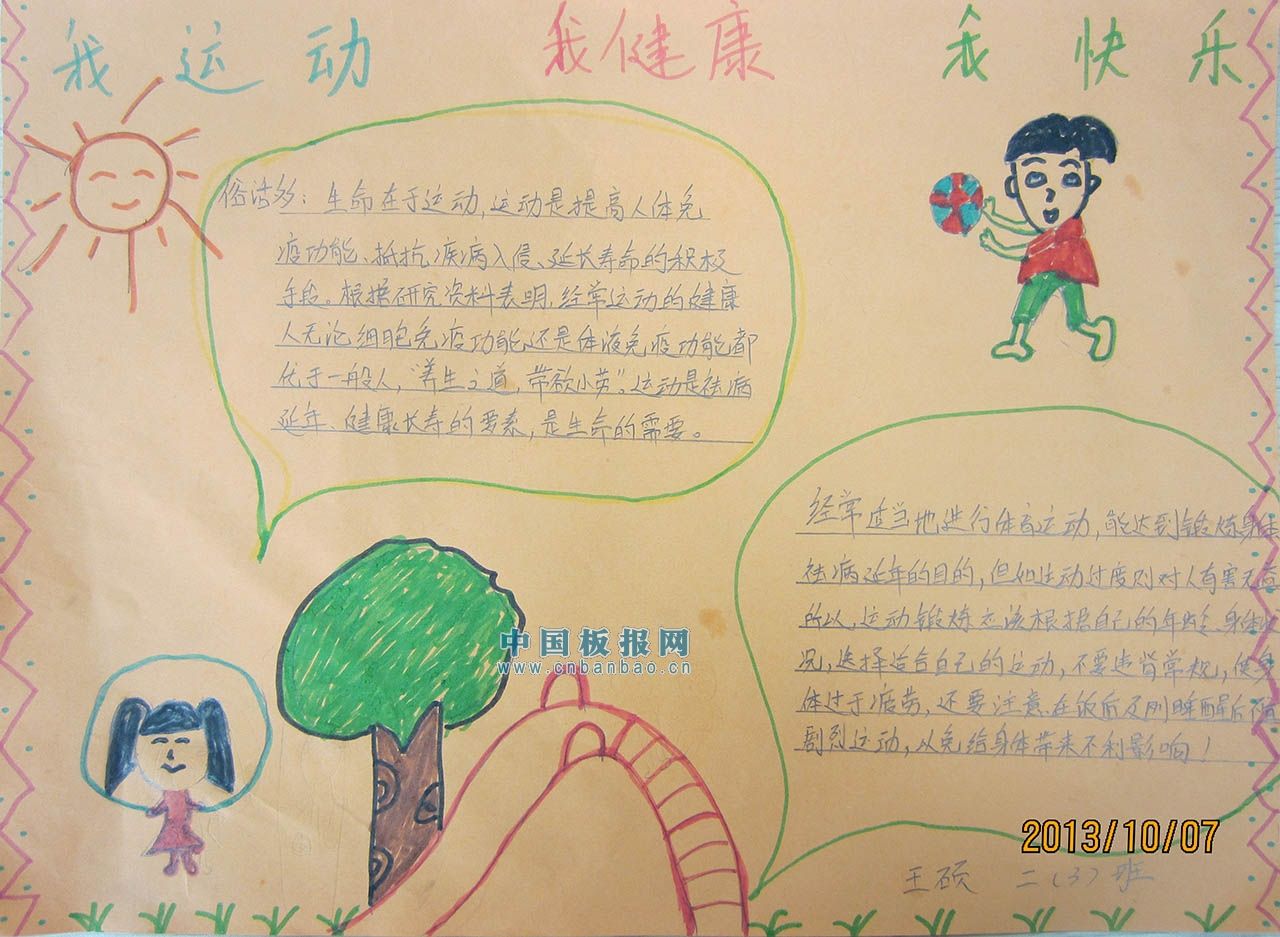 我 运 动 我 健 康 我 快 乐
俗话多：生命在于运动，运动是提高人体免
疫功能、抵抗疾病入侵、延长寿命的积极
手段。根据研究资料表明，经常运动的健康
人无论细胞免疫功能还是体液免疫功能都
优于一般人，“养生之道，带欲小劳”。运动是祛病
延年、健康长寿的要素，是生命的需要。
经常适当地进行体育运动，能达到锻炼身体
祛病延年的目的，但如运动过度则对人有害无益
所以，运动锻炼应该根据自己的年龄、身体
况，选择适合自己的运动，不要违背常规，使身
体过于疲劳，还要注意、在饭后及刚睡醒后
剧烈运动，以免给身体带来不利影响！
中国板报网
www.cnbanbao.cn
2013/10/07
王硕 二（3）班